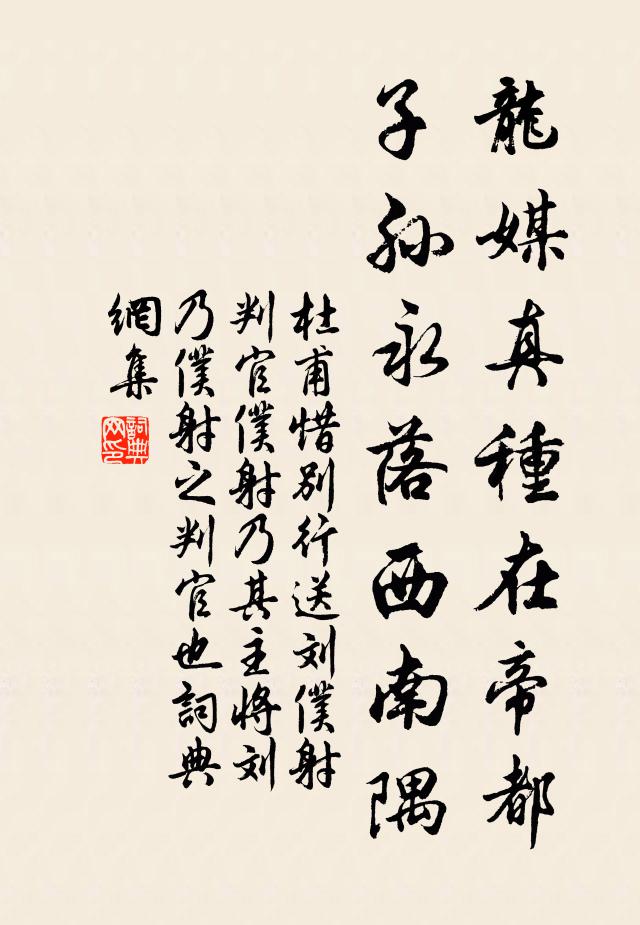 龍媒真種在帝都
子孫永落西南隅
杜甫惜別行送刘僕射
判官僕射乃其主將刘
乃僕射之判官也詞典
網集
詞典
网印